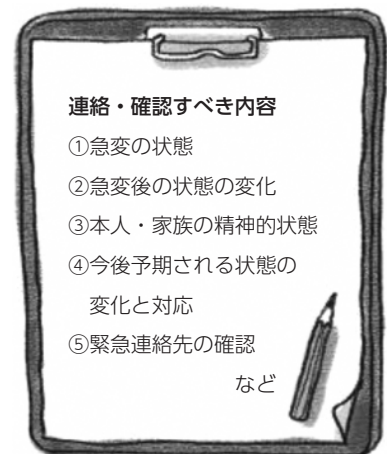 連絡・確認すべき内容
①急変の状態
②急変後の状態の変化
③本人・家族の精神的状態
④今後予期される状態の
変化と対応
⑤緊急連絡先の確認
など